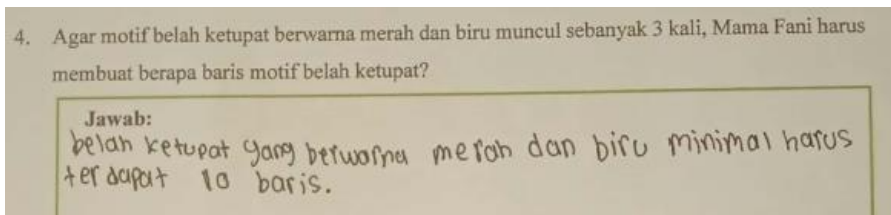 4. Agar motif belah ketupat berwarna merah dan biru muncul sebanyak 3 kali, Mama Fani harus
membuat berapa baris motif belah ketupat?
Jawab:
belah ketupat yang berwarna merah dan biru minimal harus
terdapat 10 baris.